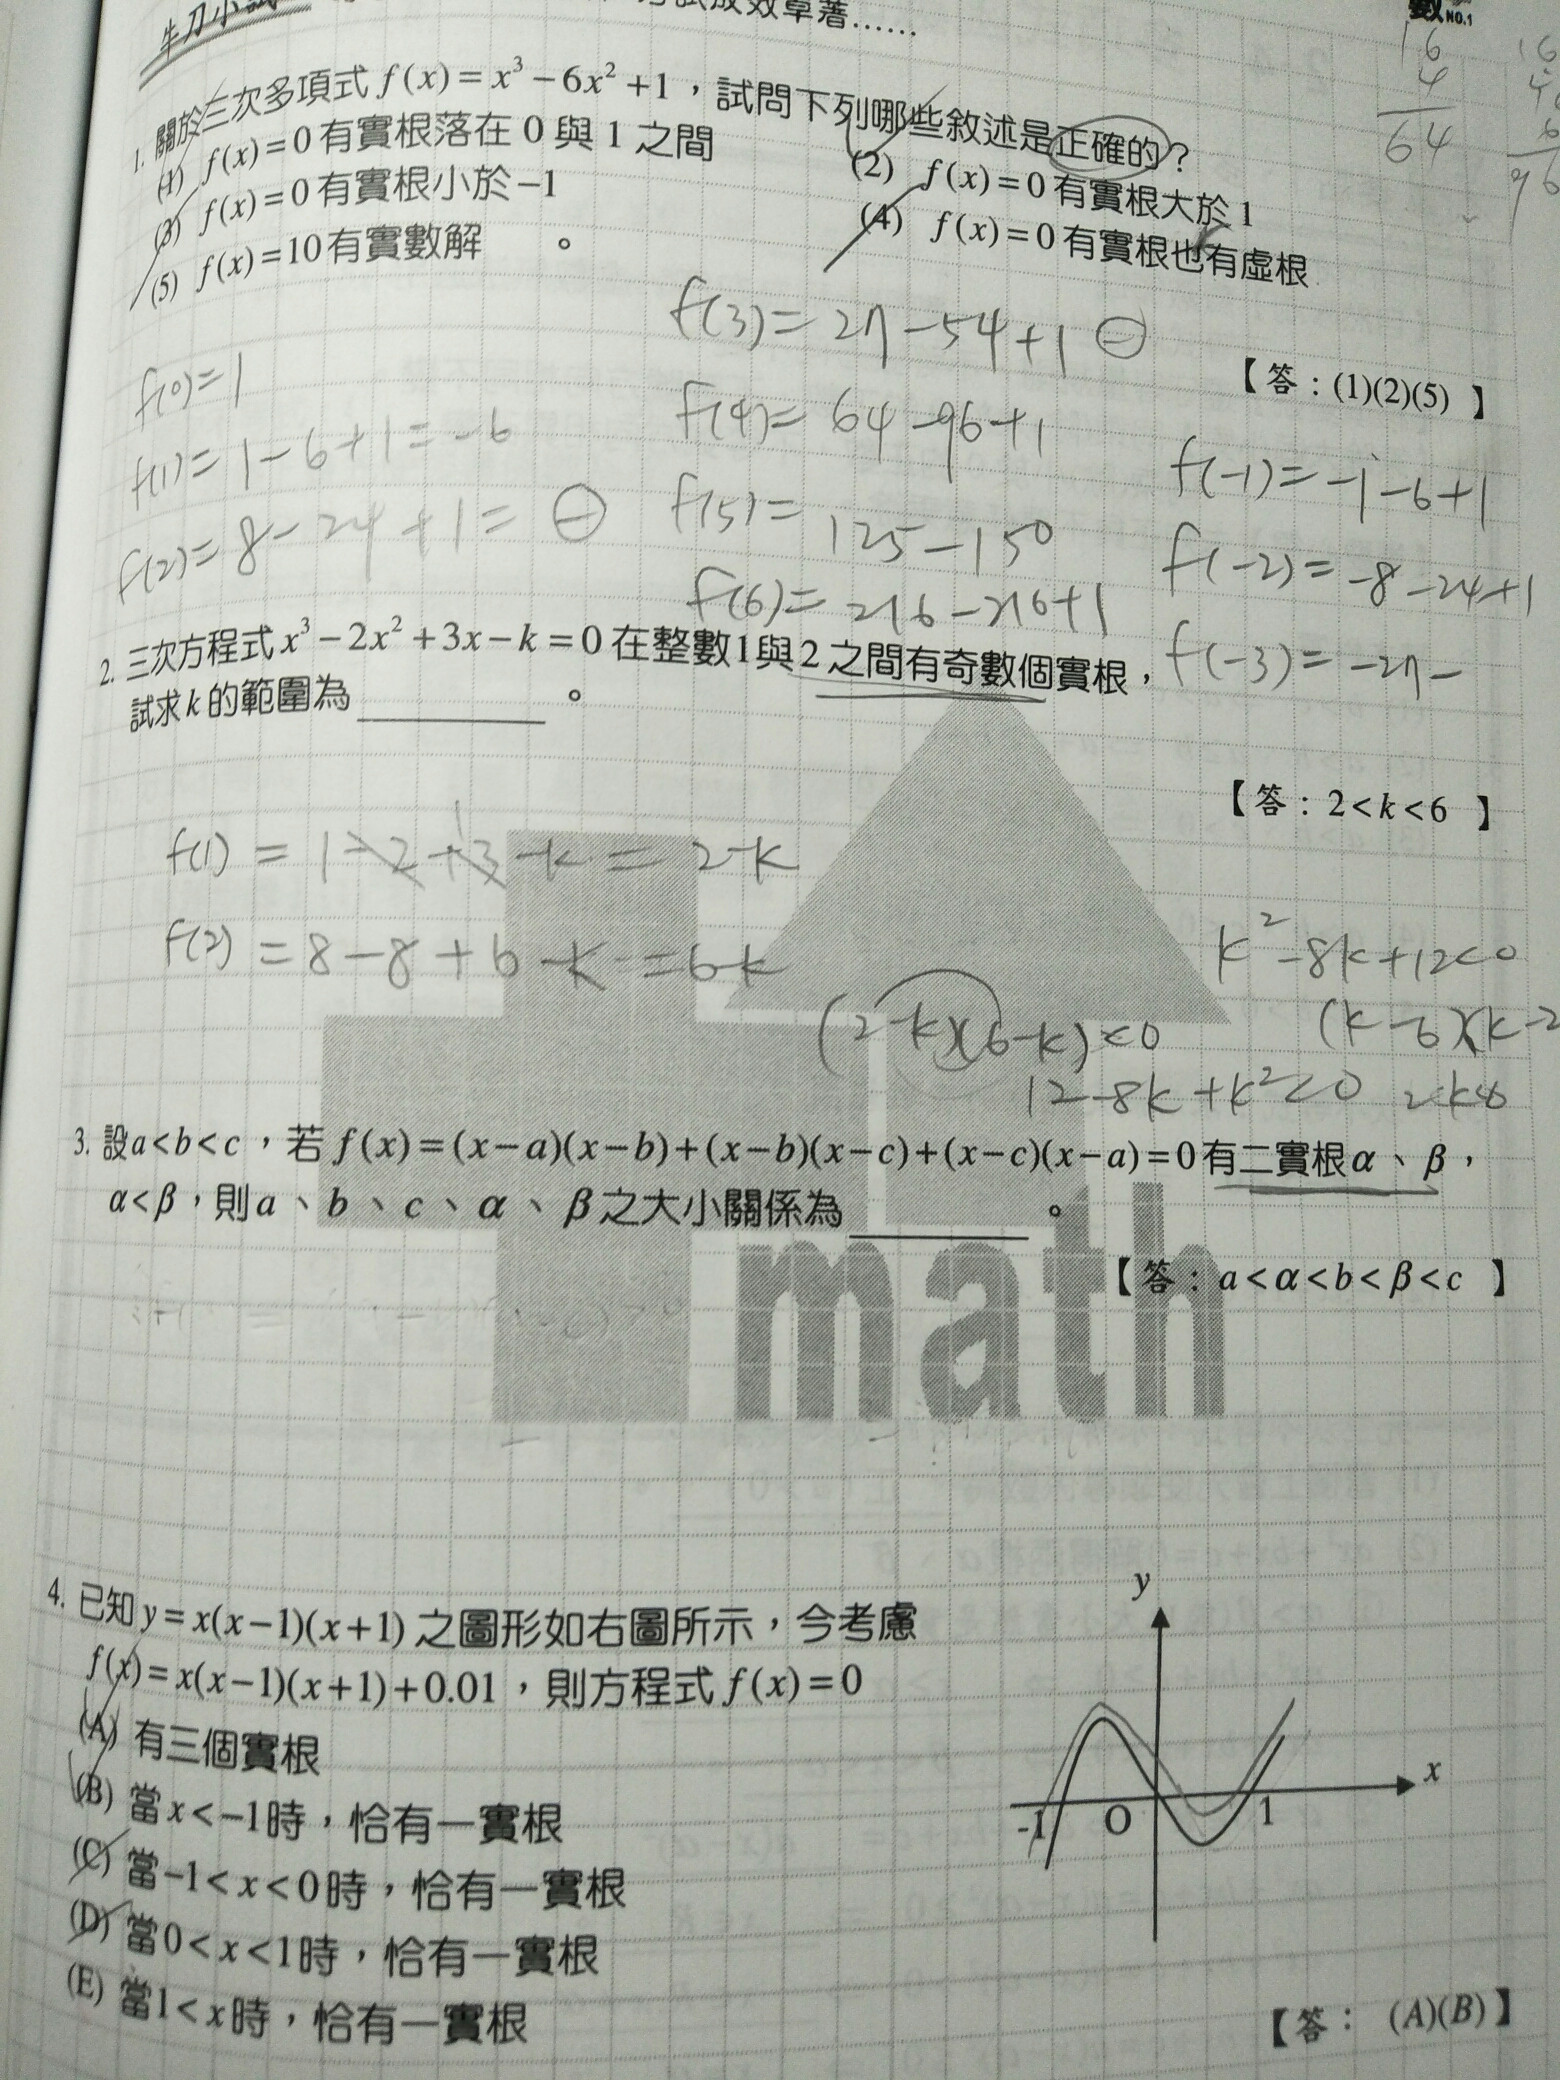 牛刀小試
數 NO.1
1. 關於三次多項式 f(x)=x³−6x²+1，試問下列哪些敘述是正確的？
(1) f(x)=0有實根落在 0 與 1 之間
(2) f(x)=0有實根大於 1
(3) f(x)=0有實根小於−1
(4) f(x)=0有實根也有虛根
(5) f(x)=10有實數解 。
【答：(1)(2)(5) 】
16
4
64
f(0)=1
f(1)=1−6+1=−6
f(2)=8−24+1=⊖
f(3)=27−54+1 ⊖
f(4)=64−96+1
f(5)=125−150
f(6)=216−216+1
f(-1)=−1−6+1
f(-2)=−8−24+1
f(-3)=−27−
2. 三次方程式 x³−2x²+3x−k=0 在整數1與2 之間有奇數個實根，
試求k的範圍為 。
【答：2<k<6 】
f(1)=1−2+3−k=2−k
f(2)=8−8+6−k=6−k
(2−k)(6−k)<0
12−8k+k²<0
k²−8k+12<0
(k−6)(k−2
2<k<6
3. 設a<b<c，若 f(x)=(x−a)(x−b)+(x−b)(x−c)+(x−c)(x−a)=0有二實根α、β，
α<β，則a、b、c、α、β之大小關係為 。
【答：a<α<b<β<c 】
math
4. 已知 y=x(x−1)(x+1) 之圖形如右圖所示，今考慮
f(x)=x(x−1)(x+1)+0.01，則方程式 f(x)=0
(A) 有三個實根
(B) 當x<−1時，恰有一實根
(C) 當−1<x<0時，恰有一實根
(D) 當0<x<1時，恰有一實根
(E) 當1<x時，恰有一實根
y
x
-1
O
1
【答： (A)(B)】